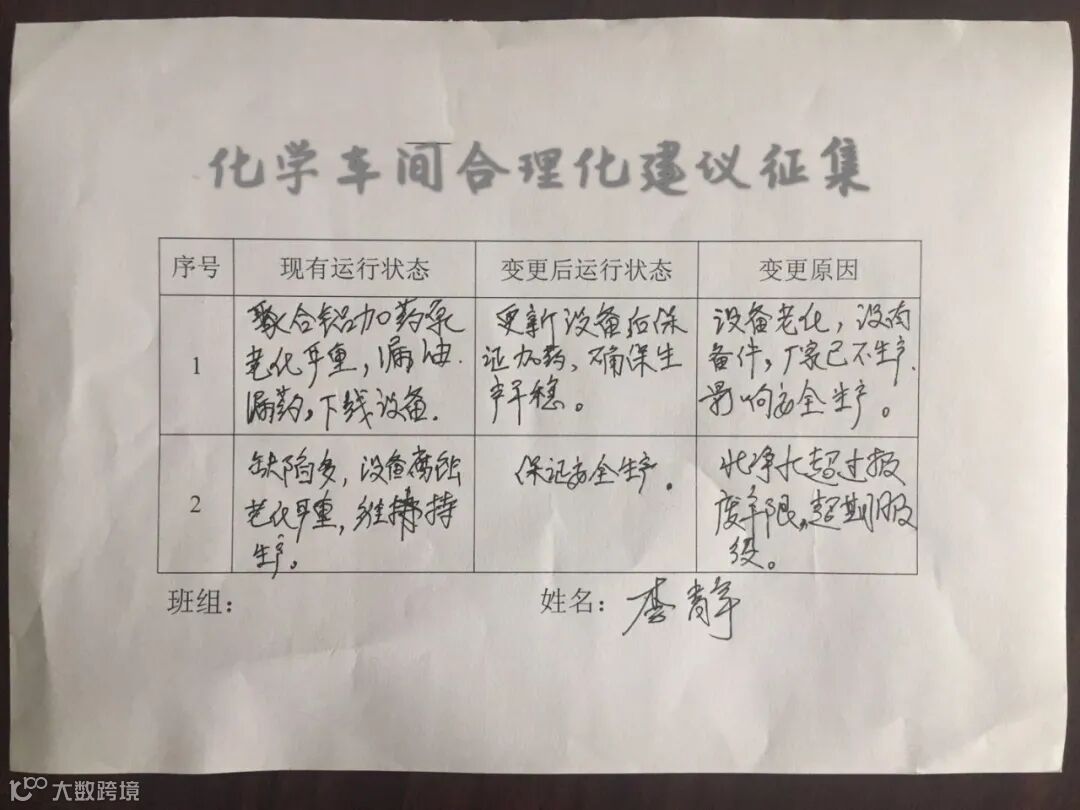 化学车间合理化建议征集
序号 现有运行状态 变更后运行状态 变更原因
1
聚合铝加药泵
老化严重，漏油.
漏药，下线设备.
更新设备后保
证加药，确保生
产平稳。
设备老化，没有
备件，厂家已不生产.
影响安全生产。
2
缺陷多，设备腐蚀
老化严重，维持
生产。
保证安全生产。
净水超过报
废年限，超期服
役。
班组：
姓名：李静
大数跨境